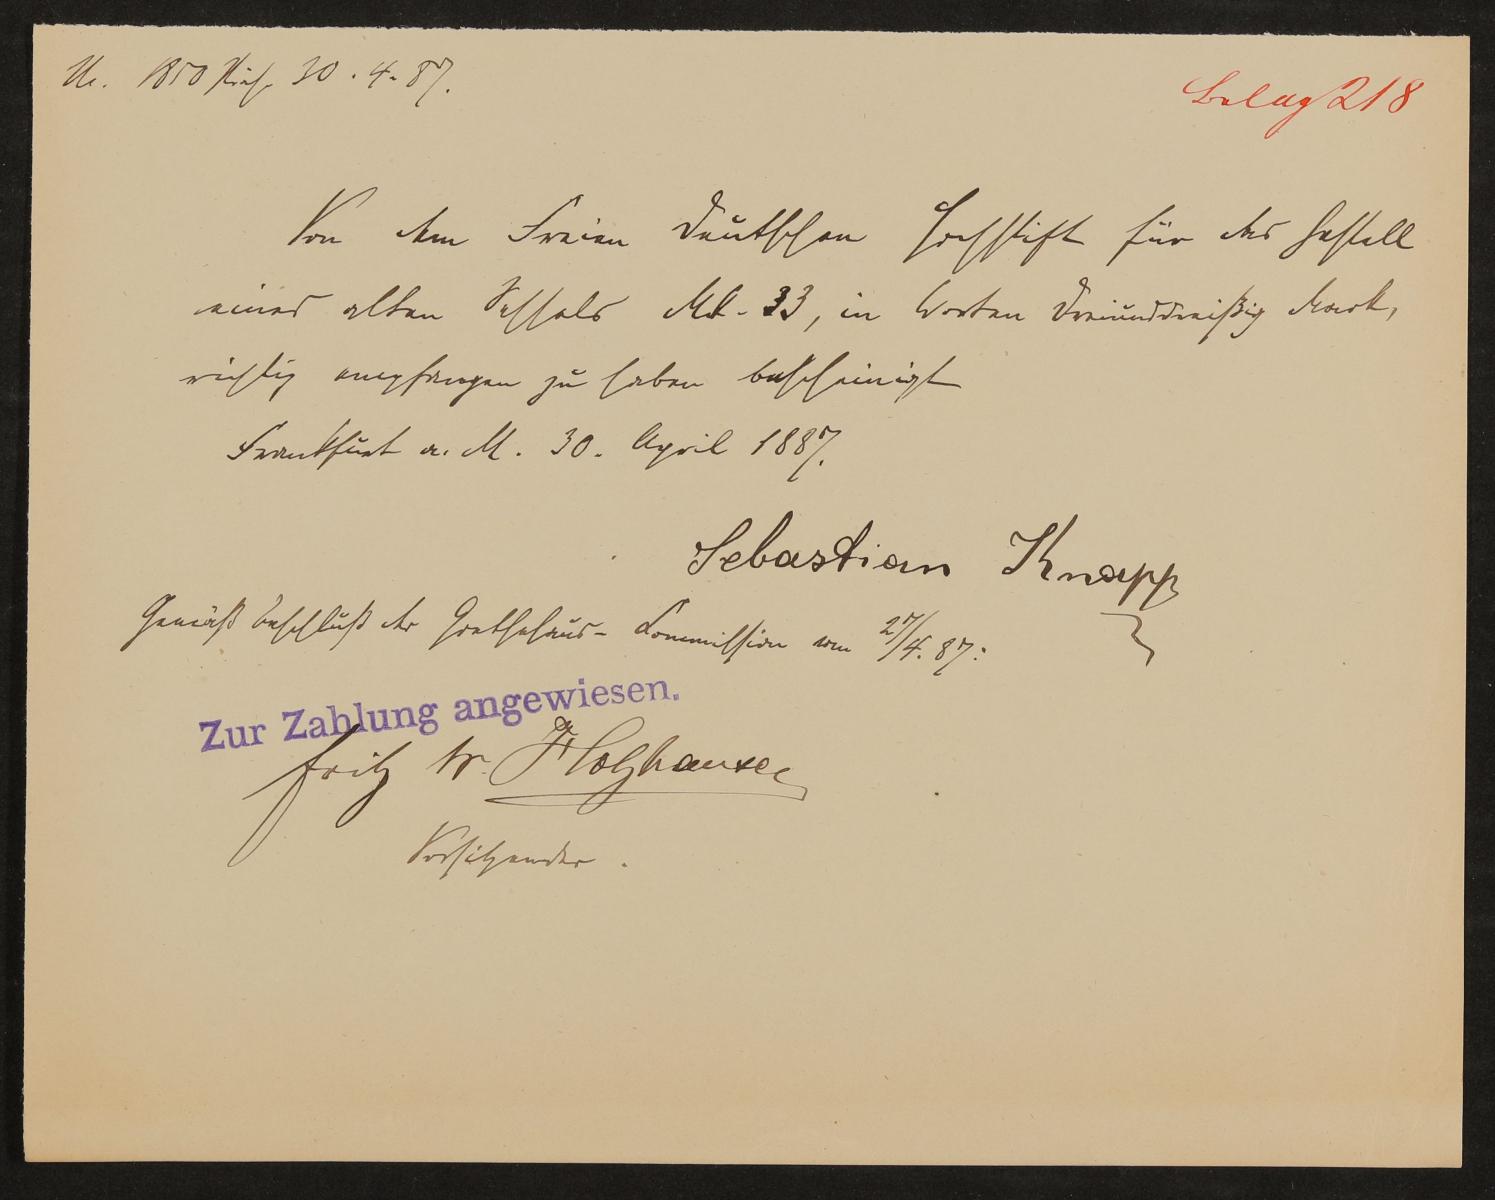 No. 1850 30. 4. 87.
Beleg 218
Von dem Freien Deutschen Hochstift für das Gestell
eines alten Sessels Mk. 33, in Worten Dreiunddreißig Mark,
richtig empfangen zu haben bescheinigt
Frankfurt a. M. 30. April 1887.
Sebastian Knapp
Gemäß Beschluß der Goethehaus-Commission vom 27/4. 87:
Zur Zahlung angewiesen.
Fritz Holzhausen
Vorsitzender.